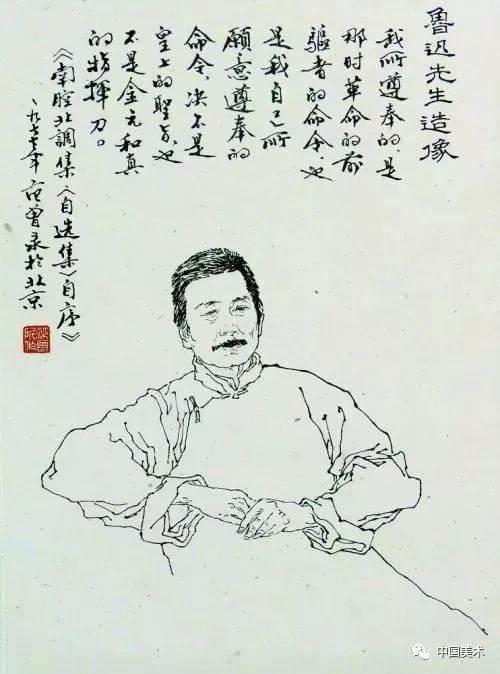 魯迅先生造像
我所遵奉的,是
那时革命的前
驱者的命令,也
是我自己所
願意遵奉的
命令,决不是
皇上的聖旨,也
不是金元和真
的指揮刀。
《南腔北調集《自选集》自序》
一九七七年 范曾录於北京
中国美术